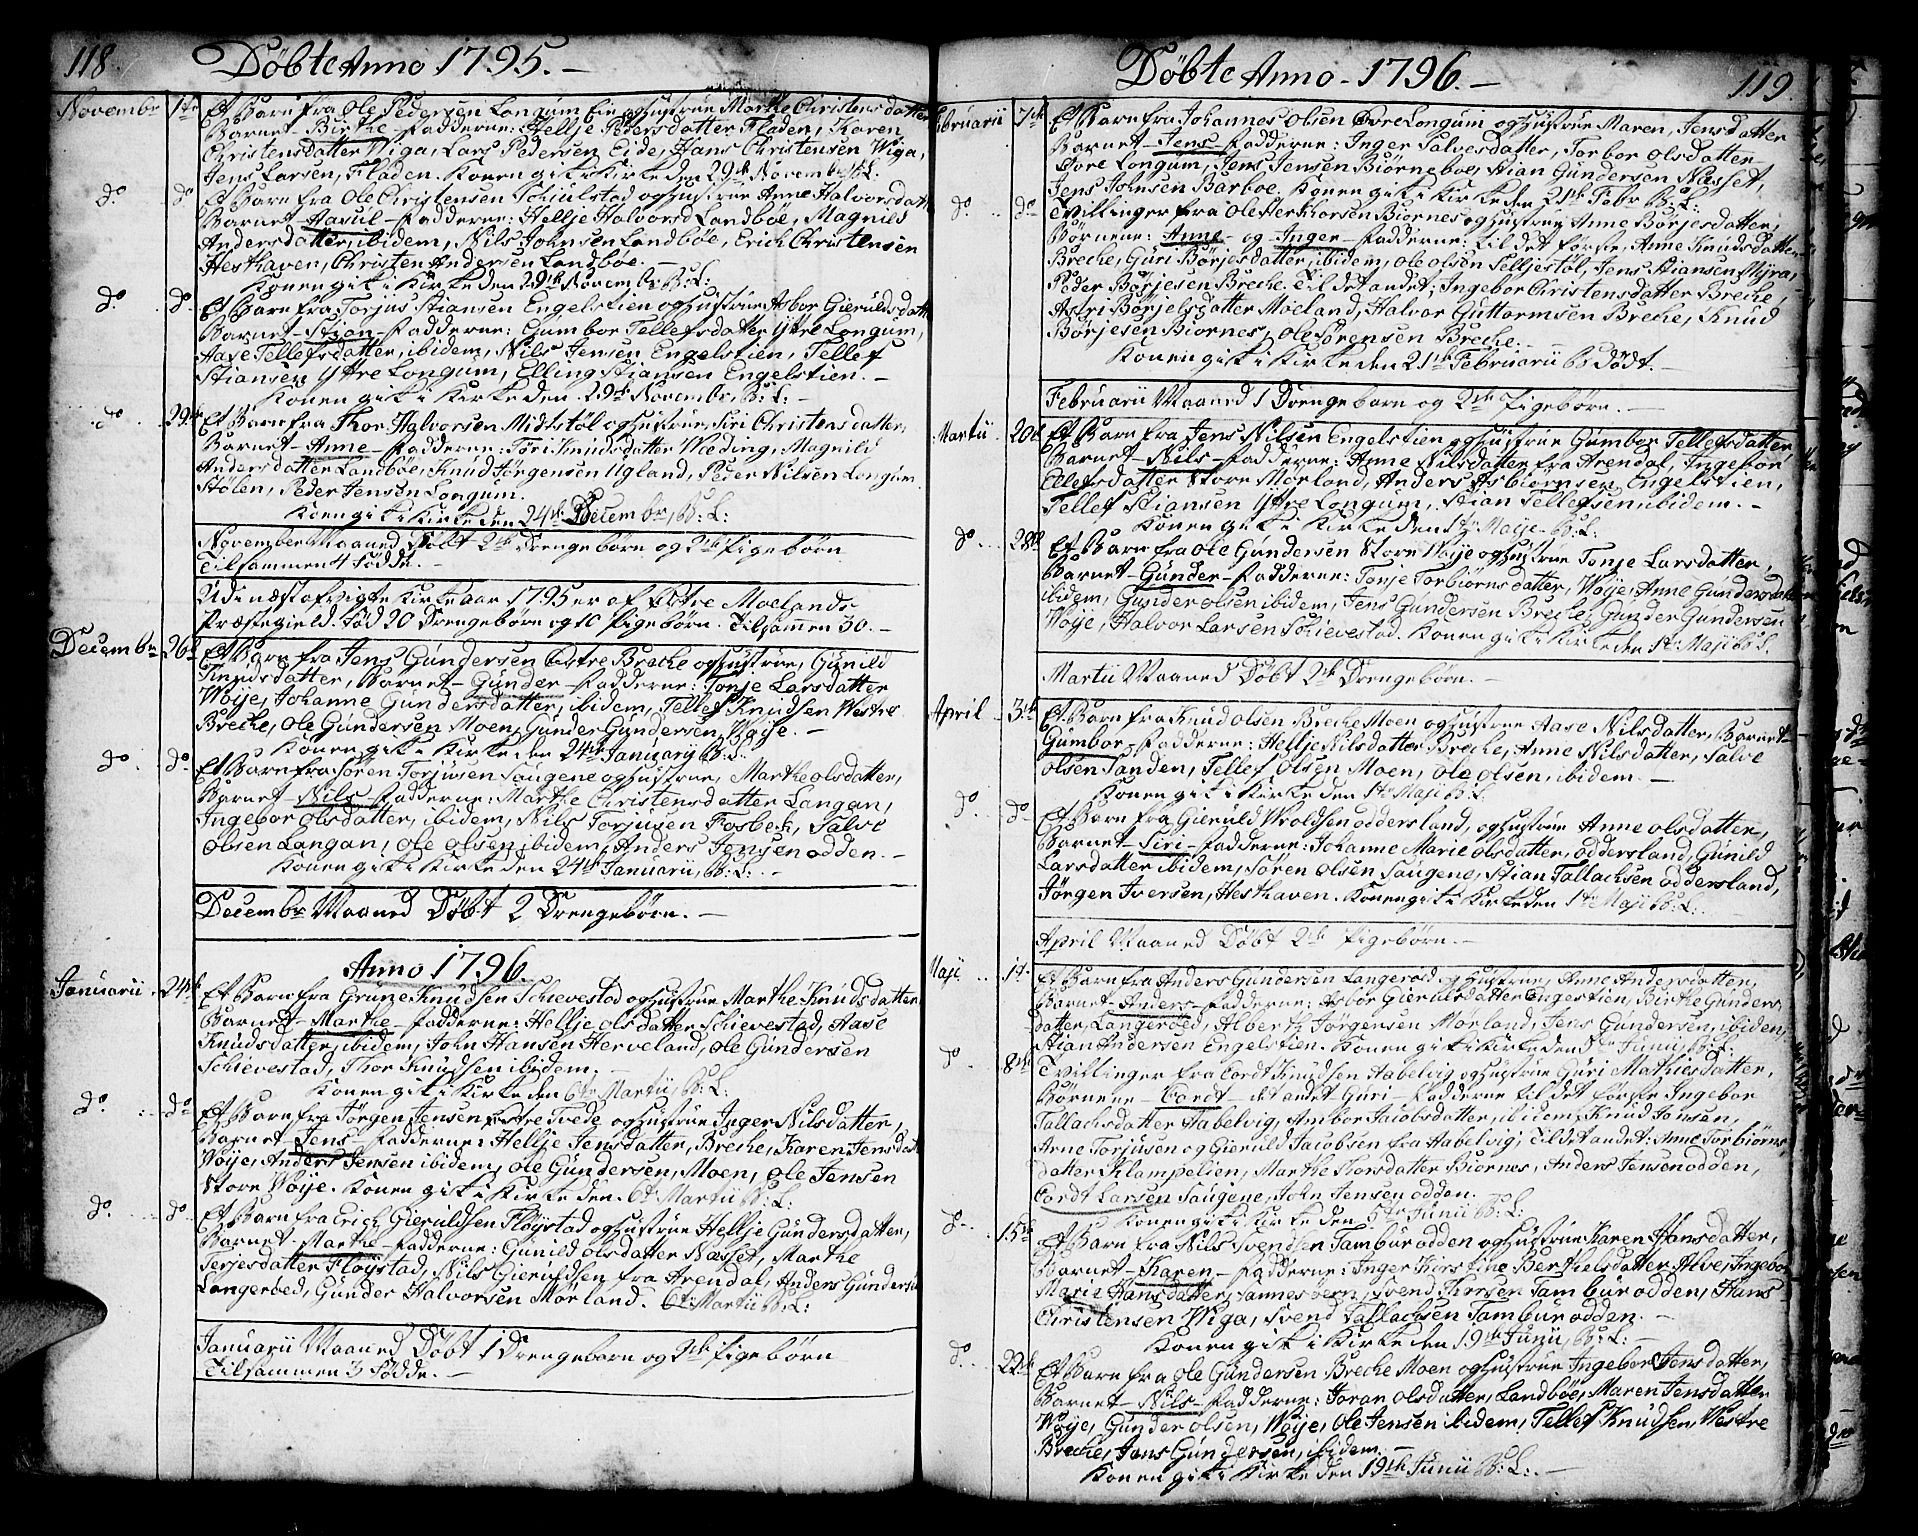 118.
Döbte Anno 1795. –
Novembr 1te Et Barn fra Ole Pedersen Longum Eie og Hustrue Marthe Christensdatter
Barnet – Birthe – Fadderne: Hellje Pedersdatter Fladen, Karen
Christensdatter Wiga, Lars Pedersen Eide, Hans Christensen Wiga,
Jens Larsen, Fladen. Konen gik i Kirke den 29de Novembr B: L:
do do Et Barn fra Ole Christensen Schiulstad og Hustrue Anne Halvorsdatt
Barnet – Aasul – Fadderne: Hellje Halvorsd Landböe, Magnild
Andersdatter, ibidem, Nils Johnsen Landböe, Erich Christensen
Hesthaven, Christen Andersen Landböe. –
Konen gik i Kirke den 29de Novembr B: L:
do do Et Barn fra Torjus Stiansen Engelstien og Hustrue, Asbor Gieruldsdatt
Barnet – Stian – Fadderne: Gumbor Tellefsdatter Yttre Longum,
Aase Tellefsdatter, ibidem, Nils Jensen Engelstien, Tellef
Stiansen Yttre Longum, Elling Stiansen Engelstien. –
Konen gik i Kirke den 29de Novembr, B: L: –
do 29de Et Barn fra Thor Halvorsen Midtstöl og Hustrue, Siri Christensdatter,
Barnet – Anne – Fadderne: Töri Knudsdatter Wæding, Magnild
Andersdatter Landböe, Knud Jörgensen Ugland, Peder Nilsen Longum
Stölen, Peder Jensen Longum.
Konen gik i Kirke den 24de Decembr, B: L:
November Maaned Döbt 2de Drengebörn og 2de Pigebörn
Tilsammen 4 Födde. –
Udi næst afvigte Kirke aar 1795 er af Östre Moelands
Præstegield Föd 20 Drengebörn og 10 Pigebörn. Tilsammen 30. –
Decembr 26de Et Barn fra Jens Gundersen Östre Breche og Hustrue, Gunild
Knudsdatter, Barnet – Gunder – Fadderne: Tonje Larsdatter
Woije, Johanne Gundersdatter, ibidem, Tellef Knudsen Westre
Breche, Ole Gundersen Moen, Gunder Gundersen, Woije. –
Konen gik i Kirke den 24de Januarij B: L:
do do Et Barn fra Sören Torjusen Saugene og Hustrue, Marthe Olsdatter,
Barnet – Nils – Fadderne: Marthe Christensdatter Langan,
Ingebor Olsdatter, ibidem, Nils Torjusen Fosbeck, Salve
Olsen Langan, Ole Olsen ibidem, Anders Jensen Odden. –
Konen gik i Kirke den 24de Januarii, B: L: –
Decembr Maaned Döbt 2 Drengebörn. –
Anno 1796.
Januarii 24de Et Barn fra Grunze Knudsen Schievestad og Hustrue Marthe Knudsdatter
Barnet – Marthe – Fadderne: Hellje Olsdatter Schievestad, Aase
Knudsdatter, ibidem, John Hansen Herveland, Ole Gundersen
Schievestad, Thor Knudsen ibidem. –
Konen gik i Kirke den 6te Martii B: L:
do do Et Barn fra Jörgen Jensen Östre Tvede og Hustrue Inger Nilsdatter,
Barnet – Jens – Fadderne: Hellje Jensdatter, Breche, Karen Jensdatt
Woije, Anders Jensen ibidem, Ole Gundersen, Moen, Ole Jensen
Store Woije. Konen gik i Kirke den 6te Martii B: L:
do do Et Barn fra Erich Gieruldsen Flöystad og Hustrue Hellje Gundersdatter,
Barnet – Marthe – Fadderne: Gunild Olsdatter Næsset, Marthe
Terjesdatter Flöystad, Nils Gieruldsen fra Arendal, Anders Gundersen
Langeröed, Gunder Halvorsen Mörland. 6te Martii B: L:
Januarii Maaned Döbt 1 Drengebarn og 2de Pigebörn
Tilsammen 3 Födde. –
119.
Döbte Anno – 1796. –
Februarii 7de Et Barn fra Johannes Olsen Övre Longum og Hustrue Maren Jensdatter
Barnet – Jens – Fadderne: Inger Salvesdatter, Torbor Olsdatter
Övre Longum, Jens Jensen Biörneboe, Stian Gundersen Næsset,
Jens Johnsen Barboe. Konen gik i Kirke den 21de Febr B: L:
do do Tvillinger fra Ole Herkhorsen Biornes og Hustrue Anne Börjesdatter,
Börnene: Anne – og – Inger – Fadderne: til det förste, Anne Knudsdatter
Breche, Guri Börjesdatter, ibidem, Ole Olsen Selljestöl, Jens Stiansen Myra,
Peder Börjesen Breche. Til det andet; Ingebor Christensdatter Breche,
Astri Börjesdatter Moeland, Halvor Guttormsen Breche, Knud
Börjesen Biornes, Ole Sörensen Breche. –
Konen gik i Kirke den 21de Februarii B: Dödt. –
Februarii Maaned 1 Drengebarn og 2de Pigebörn. –
Martii 20de Et Barn fra Jens Nilsen Engelstien og Hustrue Gumbor Tellefsdatter,
Barnet – Nils – Fadderne: Anne Nilsdatter fra Arendal, Ingebor
Ellefsdatter Store Mörland, Anders Asbiornsen Engelstien,
Tellef Stiansen Yttre Longum, Stian Tellefsen ibidem. –
Konen gik i Kirke den 1te Maije B: L:
do 28de Et Barn fra Ole Gundersen Store Woije og Hustrue Tonje Larsdatter,
Barnet – Gunder – Fadderne: Tonje Torbiörnsdatter, Woije, Anne Gundersdatter
ibidem, Gunder Olsen ibidem, Jens Gundersen Breche, Gunder Gundersen
Woije, Halvor Larsen Schievestad. Konen gik i Kirke den 1te Maji B: L.
Martii Maaned Döbt 2de Drengebörn. –
April 3de Et Barn fra Knud Olsen Breche Moen og Hustrue Aase Nilsdatter, Barnet –
Gumbor – Fadderne: Hellje Nilsdatter Breche, Anne Nilsdatter, Salve
Olsen Sanden, Tellef Olsen Moen, Ole Olsen, ibidem. –
Konen gik i Kirke den 1te Maji B: L:
do do Et Barn fra Gieruld Wroldsen Oddersland, og Hustrue Anne Olsdatter,
Barnet – Siri – Fadderne: Johanne Marie Olsdatter, Oddersland, Gunild
Larsdatter ibidem, Sören Olsen Saugene, Stian Tallachsen Oddersland,
Jörgen Iversen, Hesthaven. Konen gik i Kirke den 1te Maji B: L:
April Maaned Döbt 2de Pigebörn. –
Maji 1te Et Barn fra Anders Gundersen Langeröed og Hustrue, Anne Andersdatter,
Barnet – Anders – Fadderne: Asbor Gieruldsdatter Engestien, Birthe Gunders
datter, Langeröed, Alberth Jörgensen Mörland, Jens Gundersen, ibidem,
Stian Andersen Engelstien. Konen gik i Kirke den 5te Junii B: L:
do 8de Tvillinger fra Cordt Knudsen Aabelvig og Hustrue Guri Mathiesdatter,
Börnene – Cordt – det andet Guri – Fadderne til det förste Ingebor
Tallachsdatter Aabelvig, Anbor Jacobsdatter, ibidem, Knud Jansen,
Arne Torjusen og Gieruld Jacobsen fra Aabelvig; Til det andet: Anne Torbiörns
datter Klampelien, Marthe Thorsdatter Biornes, Anders Jensen Odden,
Cordt Larsen Saugene, John Jensen Odden.
Konen gik i Kirke den 5te Junii B: L:
do 15de Et Barn fra Nils Svendsen Tambur Odden og Hustrue Karen Hansdatter,
Barnet – Karen – Fadderne: Inger Kirstine Berthelsdatter Alve, Ingebor
Marie Hansdatter, Sannes vern, Svend Thorsen Tambur Odden, Hans
Christensen Wiga, Svend Tallachsen Tambur Odden. –
Konen gik i Kirke den 19de Junii, B: L: –
do 22de Et Barn fra Ole Gundersen Breche Moen og Hustrue Ingebor Jensdatter,
Barnet – Nils – Fadderne: Joran Olsdatter, Landböe, Maren Jensdatter
Woije, Gunder Olsen, Woije, Ole Jensen ibidem, Tellef Knudsen, Westre
Breche, Jens Gundersen, ibidem. –
Konen gik i Kirke den 19de Junii B: L: –